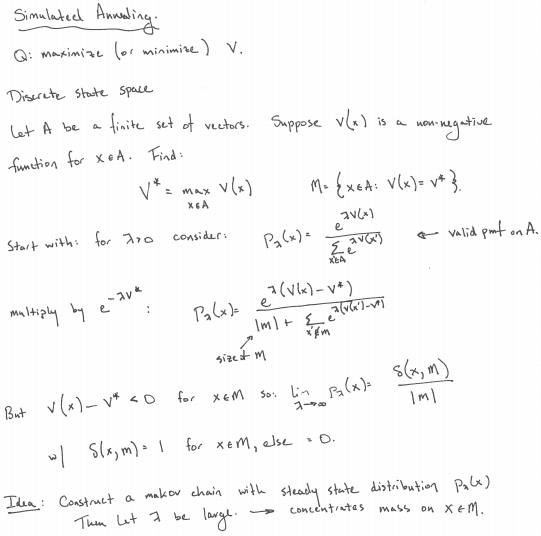 Simulated Annealing.
Q: maximize (or minimize) V.
Discrete state space
Let A be a finite set of vectors. Suppose V(x) is a non-negative
function for x∈A. Find:
V* = max_{x∈A} V(x)    M = {x∈A: V(x) = V*}.
Start with: for λ>0 consider: P_λ(x) = e^{λV(x)} / Σ_{x∈A} e^{λV(x')} ← valid pmf on A.
multiply by e^{-λV*}: P_λ(x) = e^{λ(V(x)-V*)} / (|m| + Σ_{x'∉m} e^{λ(V(x')-V*)})
size of M
But V(x) - V* < 0 for x∈M so: lim_{λ→∞} P_λ(x) = δ(x,m) / |m|
w/ δ(x,m) = 1 for x∈M, else = 0.
Idea: Construct a makov chain with steady state distribution P_λ(x)
Then Let λ be large. → concentrates mass on x∈M.